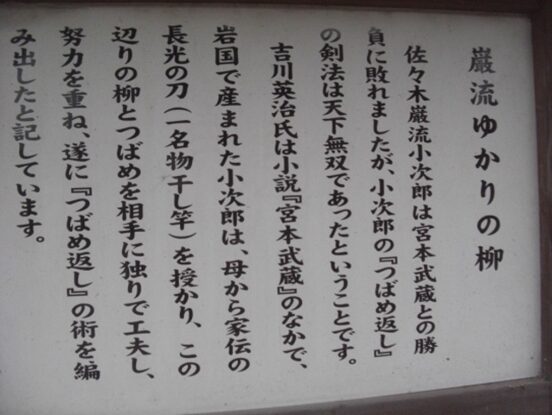 巌流ゆかりの柳
佐々木巌流小次郎は宮本武蔵との勝
負に敗れましたが、小次郎の『つばめ返し』
の剣法は天下無双であったということです。
吉川英治氏は小説『宮本武蔵』のなかで、
岩国で産まれた小次郎は、母から家伝の
長光の刀（一名物干し竿）を授かり、この
辺りの柳とつばめを相手に独りで工夫し、
努力を重ね、遂に『つばめ返し』の術を編
み出したと記しています。